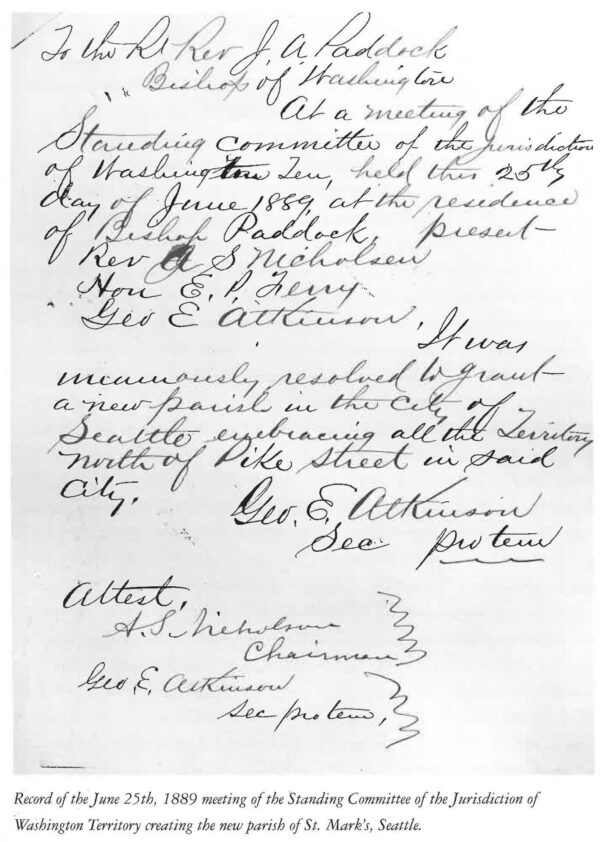 To the Rt Rev J. A. Paddock
Bishop of Washington
At a meeting of the
Standing Committee of the jurisdiction
of Washington Ter, held this 25th
day of June 1889, at the residence
of Bishop Paddock, present
Rev A S Nicholson
Hon E. P. Ferry
Geo E Atkinson,
It was
unanimously resolved to grant
a new parish in the city of
Seattle embracing all the Territory
north of Pike street in said
City.
Geo. E. Atkinson
Sec protem
Attest,
A. S. Nicholson
Chairman
Geo. E. Atkinson
Sec protem,
Record of the June 25th, 1889 meeting of the Standing Committee of the Jurisdiction of
Washington Territory creating the new parish of St. Mark's, Seattle.